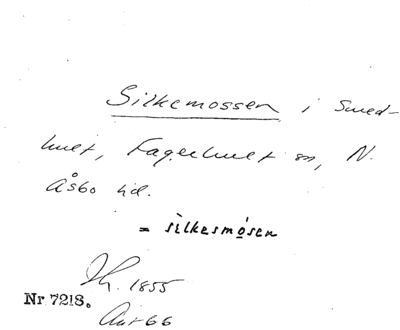 Silkemossen i Smed-
hult, Fagerhult sn, N.
Åsbo hd.
= silkesmósen
Th. 1855
Nr 7218.
Avt 66